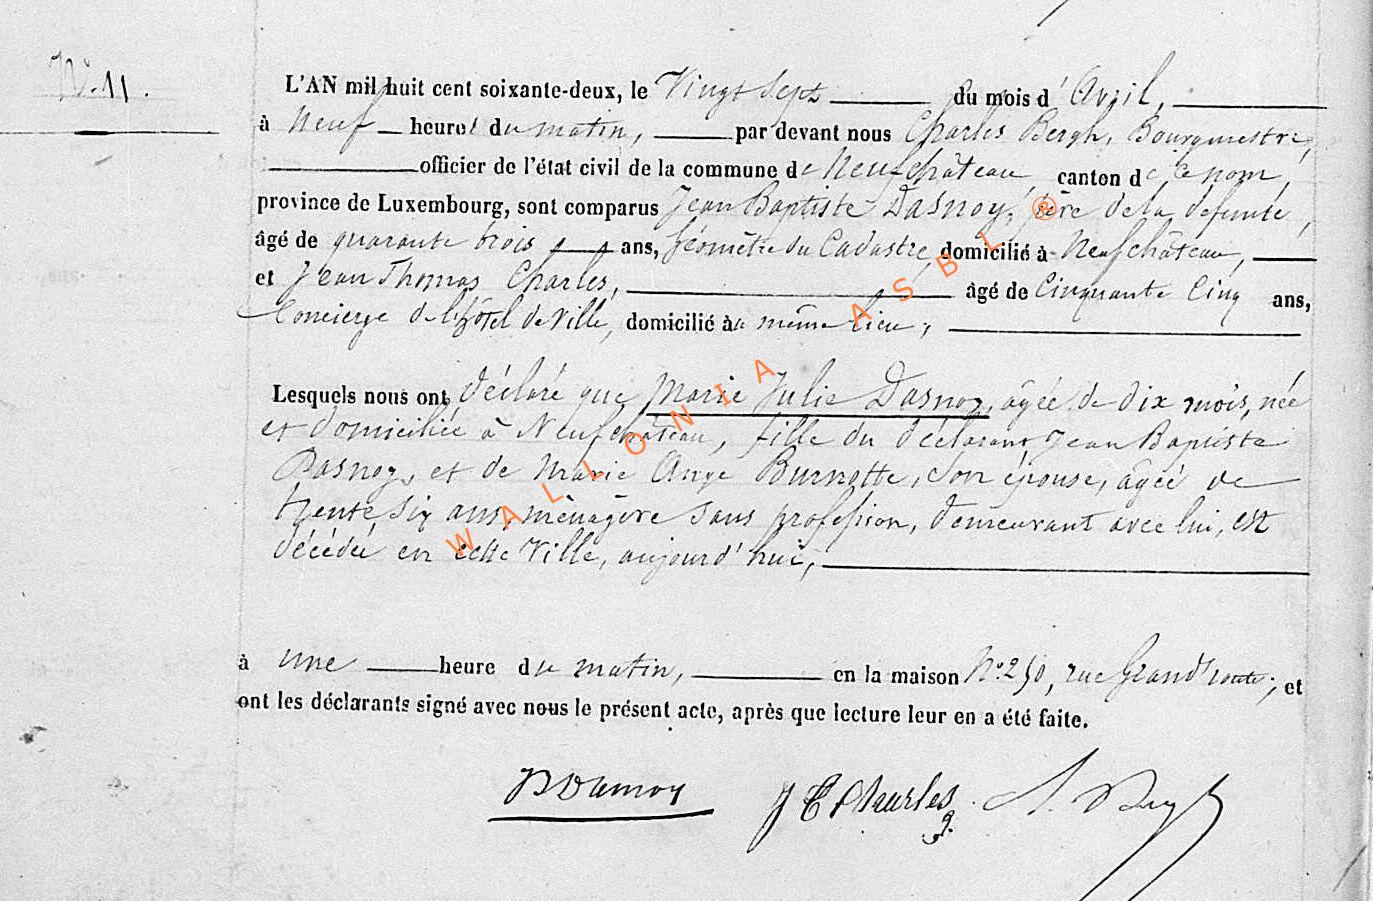 N°. 11.
L'AN mil huit cent soixante-deux, le Vingt Sept du mois d'Avril,
à Neuf heures du matin, par devant nous Charles Bergh, Bourgmestre,
officier de l'état civil de la commune de Neufchâteau canton de ce nom,
province de Luxembourg, sont comparus Jean Baptiste Dasnoy, père de la défunte,
âgé de quarante trois ans, Géomètre du Cadastre, domicilié à Neufchâteau,
et Jean Thomas Charles, âgé de Cinquante Cinq ans,
Concierge de l'hôtel de Ville, domicilié au même lieu;
Lesquels nous ont déclaré que Marie Julie Dasnoy, âgée de dix mois, née
et domiciliée à Neufchâteau, fille du déclarant Jean Baptiste
Dasnoy, et de Marie Ange Burnotte, son épouse, âgée de
trente six ans, ménagère sans profession, demeurant avec lui, est
décédée en cette Ville, aujourd'hui,
à une heure du matin, en la maison N°. 250, rue Grand'route; et
ont les déclarants signé avec nous le présent acte, après que lecture leur en a été faite.
JBDasnoy
Charles
WALLONIA ASBL ®